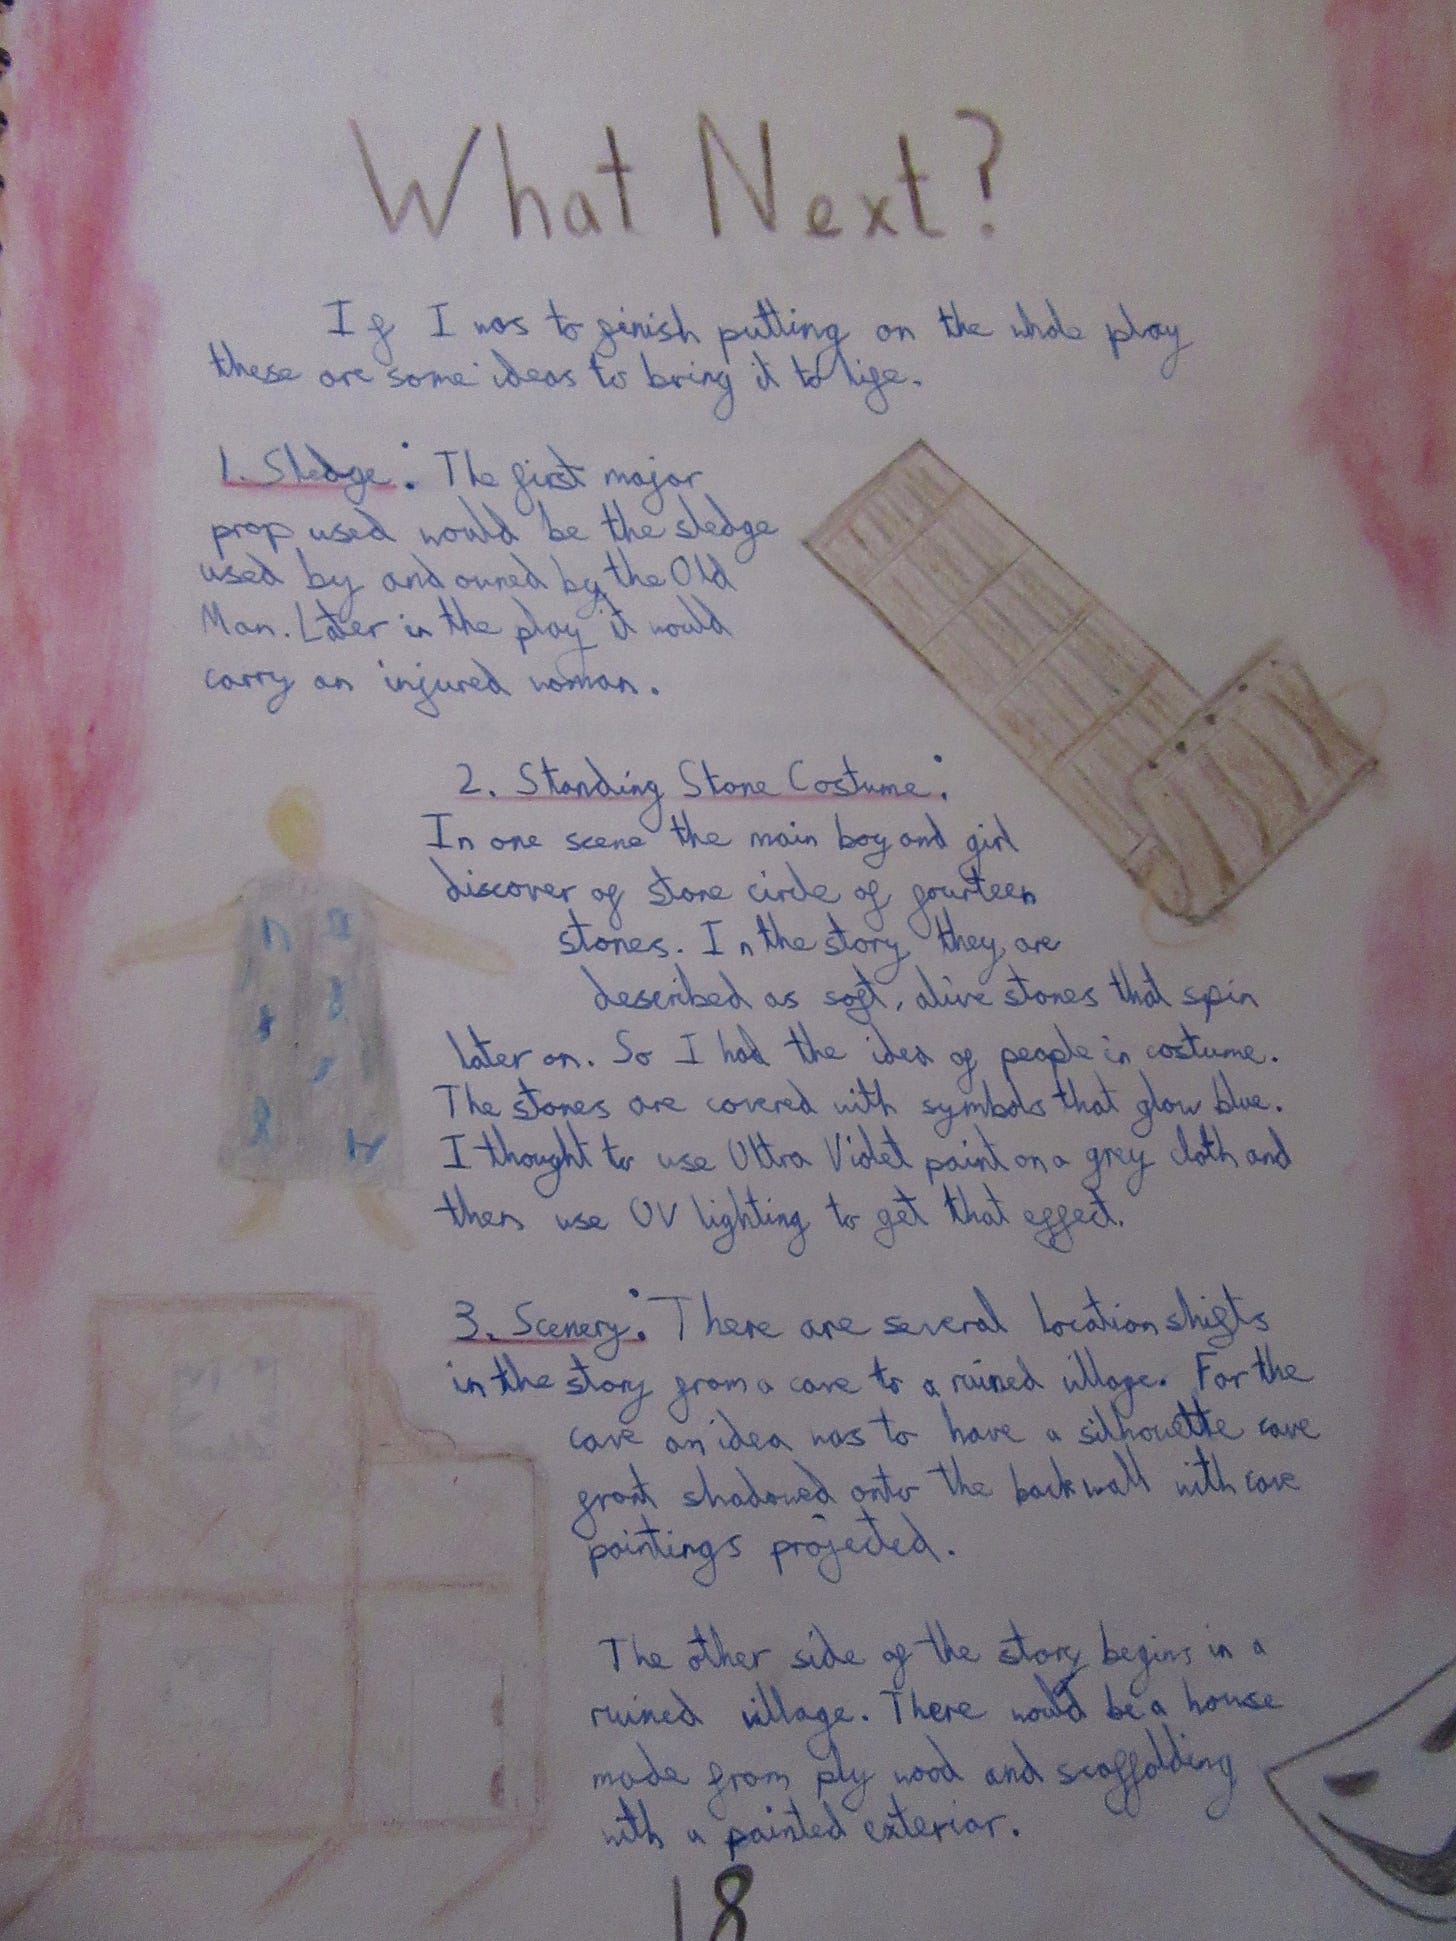 What Next?
If I was to finish putting on the whole play
these are some ideas to bring it to life.
1. Sledge: The first major
prop used would be the sledge
used by and owned by the Old
Man. Later in the play it would
carry an injured woman.
2. Standing Stone Costume:
In one scene the main boy and girl
discover of stone circle of fourteen
stones. In the story they are
described as soft, alive stones that spin
later on. So I had the idea of people in costume.
The stones are covered with symbols that glow blue.
I thought to use Ultra Violet paint on a grey cloth and
then use UV lighting to get that effect.
3. Scenery: There are several location shifts
in the story from a cave to a ruined village. For the
cave an idea was to have a silhouette cave
front shadowed onto the back wall with cave
paintings projected.
The other side of the story begins in a
ruined village. There would be a house
made from ply wood and scaffolding
with a painted exterior.
18